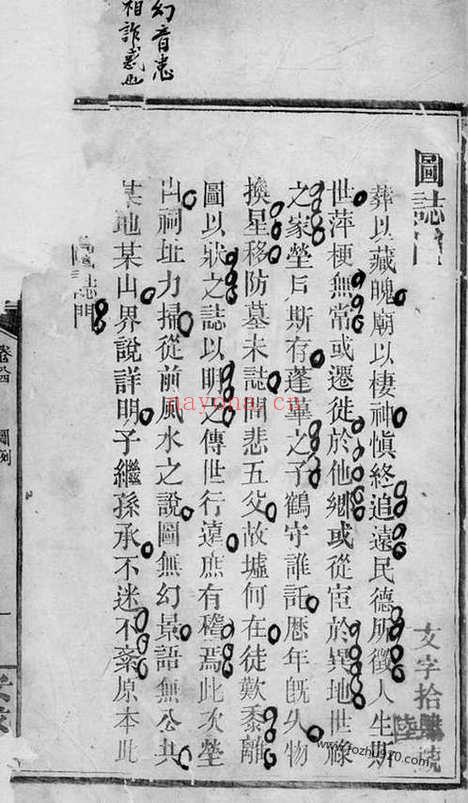 幻音患
相詐惑也
圖誌門
葬以藏魄廟以棲神愼終追遠民德所徵人生斯
世萍梗無常或遷徙於他鄉或從宦於異地世祿
之家塋戶斯存蓬蓽之子鶴守誰託歷年旣久物
換星移防墓未誌聞悲五父故墟何在徒歎黍離
圖以狀之誌以明之傳世行遠庶有稽焉此次塋
山祠址力掃從前風水之說圖無幻景語無公共
某地某山界說詳明子繼孫承不迷不紊原本此
圖誌門
文字拾
陸
卷
圖例
nayona.cn
www.fozhu920.com